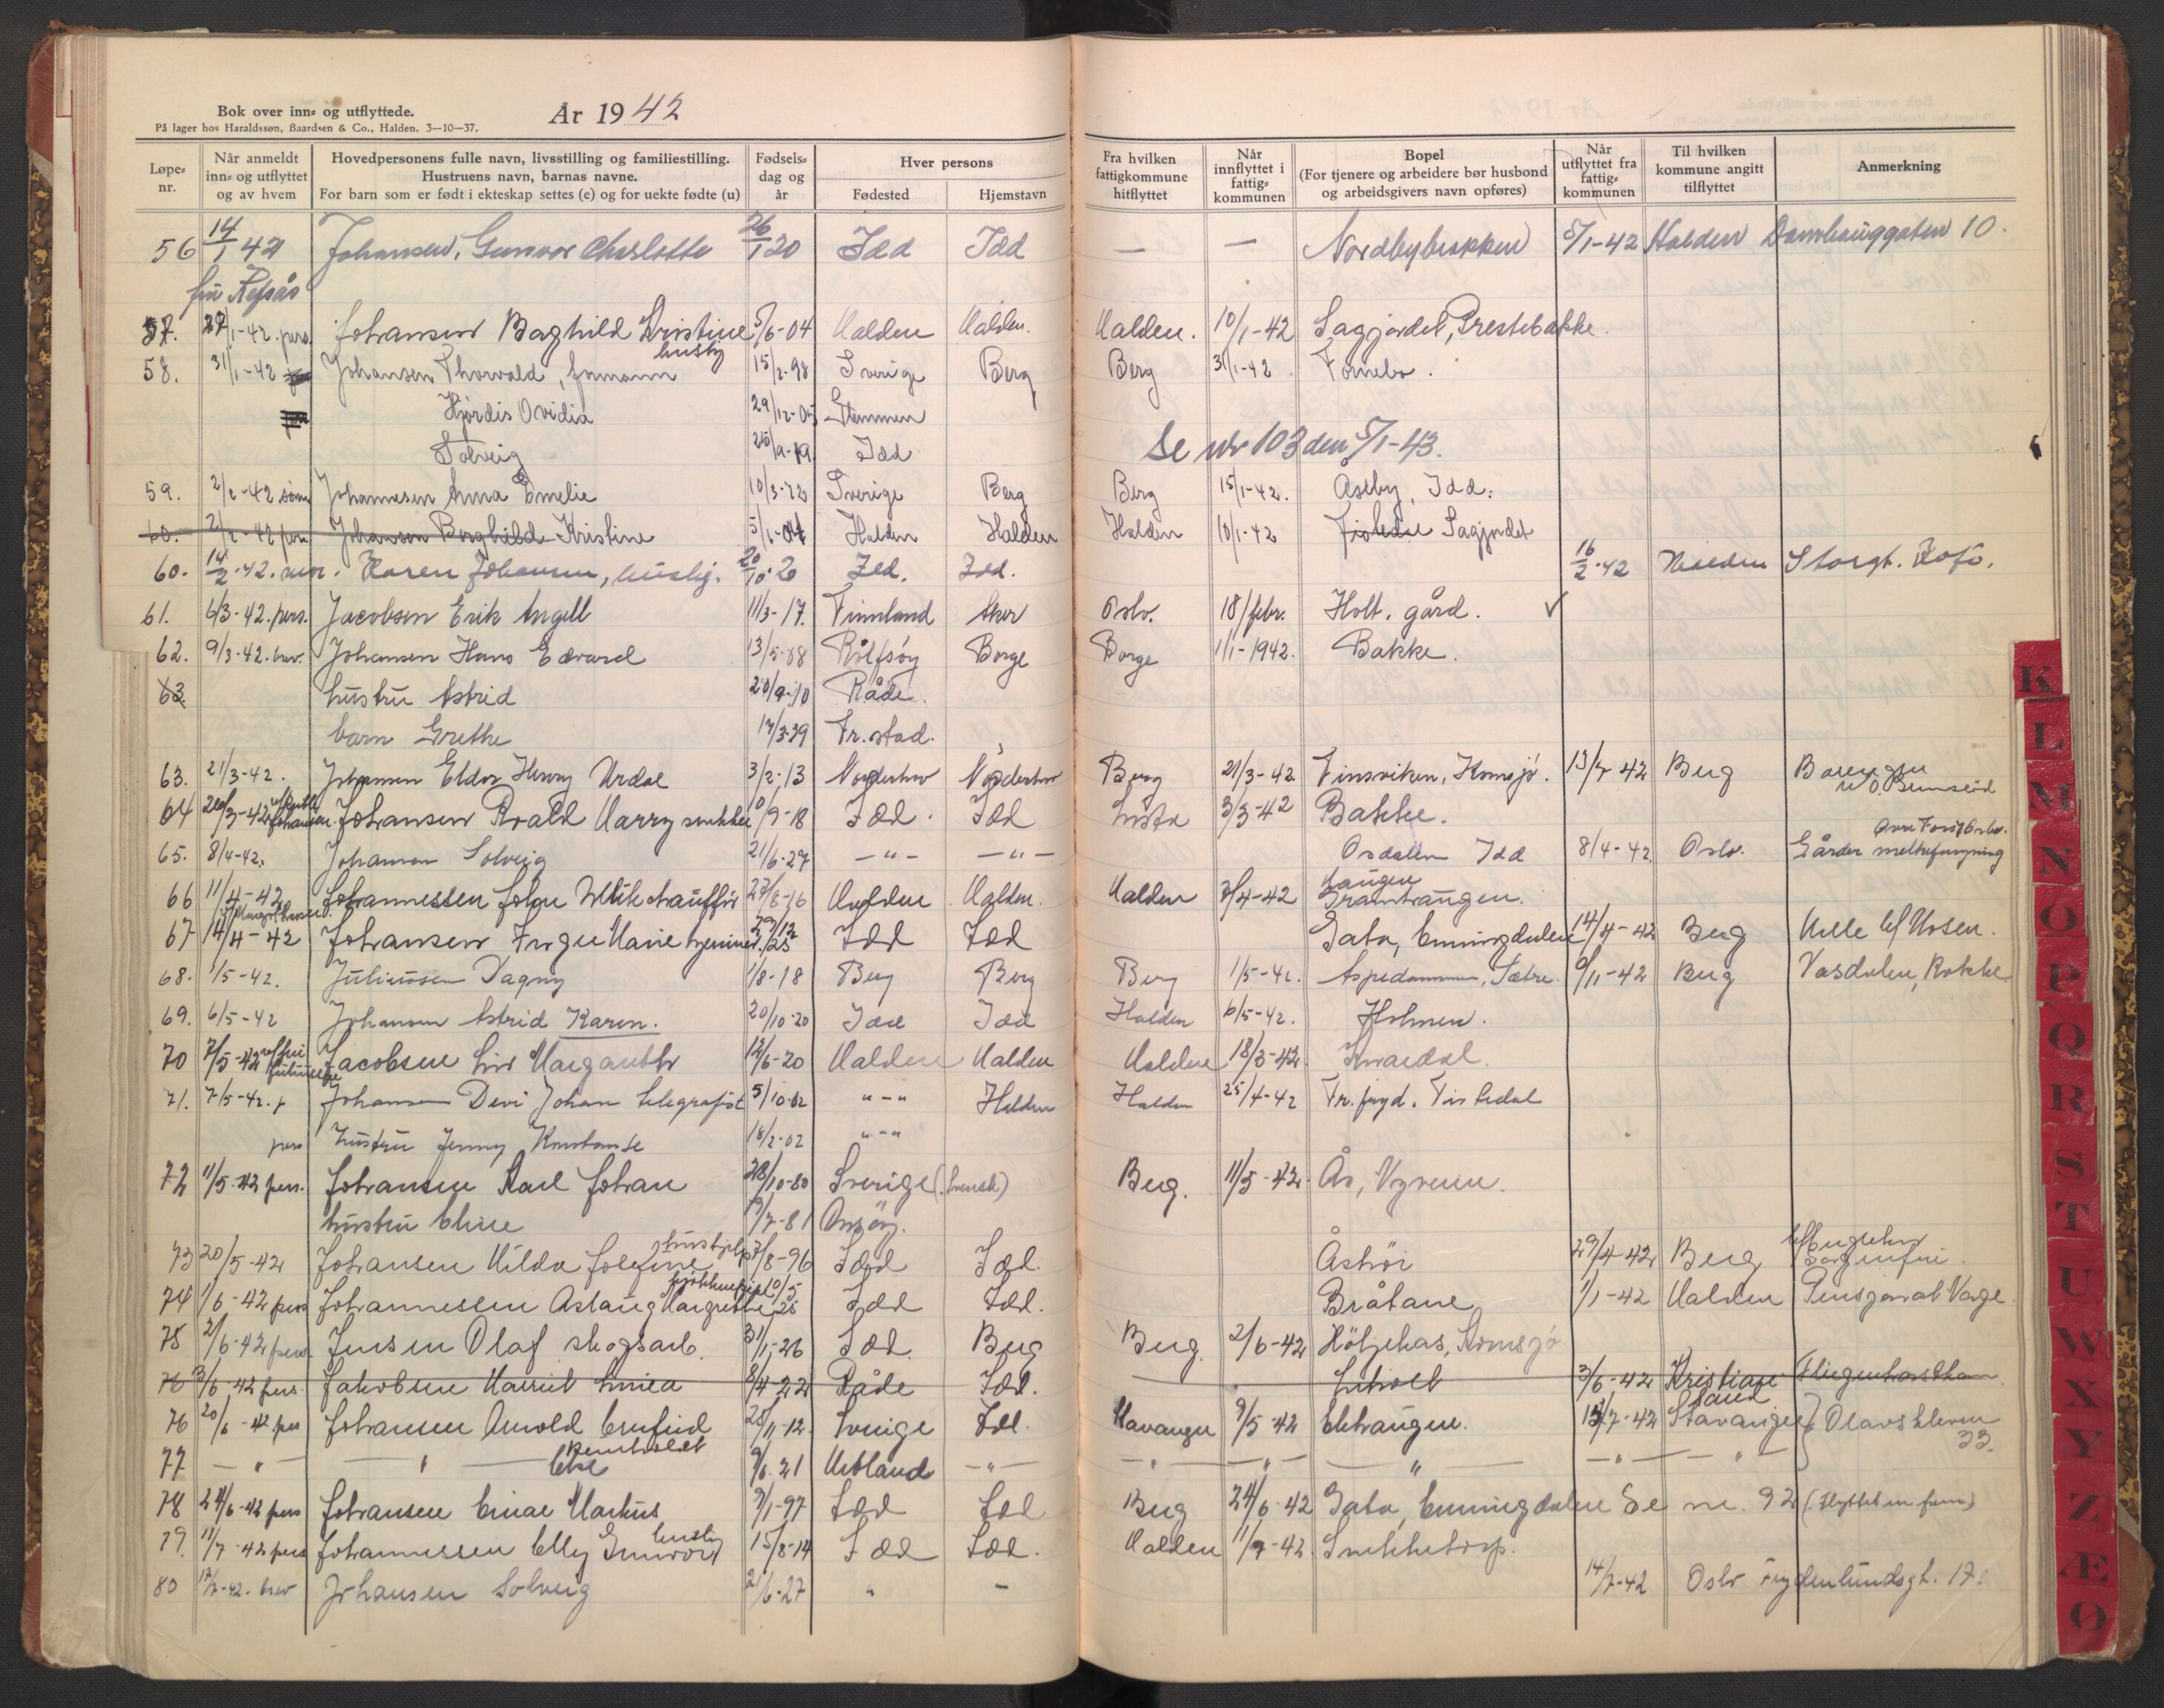 Bok over inn- og utflyttede.
På lager hos Haraldssøn, Baardsen & Co., Halden. 3—10—37.
År 1942
Løpe-nr. | Når anmeldt inn- og utflyttet og av hvem | Hovedpersonens fulle navn, livsstilling og familiestilling. Hustruens navn, barnas navne. For barn som er født i ekteskap settes (e) og for uekte fødte (u) | Fødselsdag og år | Hver persons Fødested | Hjemstavn | Fra hvilken fattigkommune hitflyttet | Når innflyttet i fattigkommunen | Bopel (For tjenere og arbeidere bør husbond og arbeidsgivers navn opføres) | Når utflyttet fra fattigkommunen | Til hvilken kommune angitt tilflyttet | Anmerkning
56 14/1 42 Johansen, Gunvor Charlotte 26/1 20 Idd Idd — — Nordbybrakken 5/1-42 Halden Damhauggaten 10.
fru Refsås
57. 27/1-42. pers. Johansen Baghild Kristine 5/6-04 Halden Halden. Halden. 10/1-42 Sagjordet, Prestebakke.
husby
58. 31/1-42 Johansen Thorvald, formann 15/2-98 Sverige Berg Berg 31/1-42 Tornebo.
Hjørdis Ovidia 29/12-05 Stemmen
Solveig 25/9-19 Idd Se nr 103 den 5/1-43.
59. 2/2-42 sønn Johannesen Anna Emelie 10/3-72 Sverige Berg Berg 15/1-42. Åseby, Idd.
60. 2/2-42 pers Johanson Borghild Kristine 5/6-04 Halden Halden Halden 10/1-42 Sagjordet
60. 14/2-42. Karen Johansen, huslig. 20/10-20 Idd. Idd. 16/2-42 Halden Storgt.
61. 6/3-42. pers. Jacobsen Erik Angell 11/3-17. Finnland Aker Oslo. 18/febr. Holt. gård. ✓
62. 9/3-42. brev. Johansen Hans Edvard 13/5-08 Rolfsøy Borge Borge 1/1-1942. Bakke.
63. hustru Astrid 20/9-10 Råde.
barn Grethe 17/3-39 Fr.stad.
63. 21/3-42. Johansen Eldor Henry Urdal 3/2-13 Norderhov Norderhov Berg 21/3-42. Finsviken, Kornsjø. 13/7-42 Berg
64 Johansen Roald Harry snekker 10/9-18 Idd. Idd 3/3-42 Bakke.
65. 8/4-42. Johansen Solveig 21/6-27 —"— —"— Osdalen Idd 8/4-42. Oslo. Gårder melkeforsyning
66 11/4-42 Johannessen John Ulrik chauffør 27/8-16 Halden Halden. Halden 2/4-42 Haugen
67 14/4-42 Johansen Inger Marie hjemme. 29/12 25 Idd Idd Gata, Enningdalen 14/4-42 Berg
68. 1/5-42. Juliussen Dagny 1/8-18 Berg Berg Berg 1/5-42. Aspedammen, Sætre. 9/11-42 Berg Vasdalen, Rokke
69. 6/5-42 Johansen Astrid Karen. 20/10-20 Idd Idd Halden 6/5-42. Holmen.
70 7/5-42 Jacobsen Liv Margarethe 12/6-20 Halden Halden Halden 18/3-42.
71. 7/5-42. p Johansen Devi Johan telegrafist 5/10-02 "—" Halden Halden 25/4-42 Fr.fryd. Tistedal
pers hustru Jenny Konstanse 18/2-02 "—"
72 11/5-42 pers. Johansen Karl Johan 28/10-80 Sverige (svensk) Berg. 11/5-42. Ås,
hustru Eline 12/7-81 Onsøy.
73 20/5-42 Johansen Hilda Josefine hushjelp 7/8-96 Idd Idd. 29/4-42 Berg Sorgenfri.
74 1/6-42 pers Johannessen Aslaug Margrethe kjøkkenpike 10/5 25 Idd Idd. Bråtane 1/1-42 Halden
75 2/6-42 pers Jensen Olaf skogsarb. 31/1-26 Idd. Berg Berg. 2/6-42 Kornsjø
76 3/6-42 pers. Jakobsen Harriet Linnea 8/4-22 Råde Idd. 3/6-42 Kristiansand
76 20/6-42 pers Johansen Arnold Enfred 25/11-12. Sverige Idd. Stavanger 9/5-42 13/7-42 Stavanger } Olavskleven
77 —"— —"— Else 9/6-21 Utland —"— —"— —"— —"— —"— —"— 33.
78 24/6-42 pers Johansen Einar Markus 9/1-97 Idd Idd Berg 24/6-42 Gata, Enningdalen Se nr. 92
79. 11/7-42 pers Johannessen Elly Gunvor husby 15/8-14 Idd Idd. Halden 11/7-42 Snekketorp.
80 17/7-42. brev Johansen Solveig 21/6-27 " — 14/7-42 Oslo Frydenlundsgt. 17.
K
L
M
N
O
P
Q
R
S
T
U
W
X
Y
Z
Æ
Ø